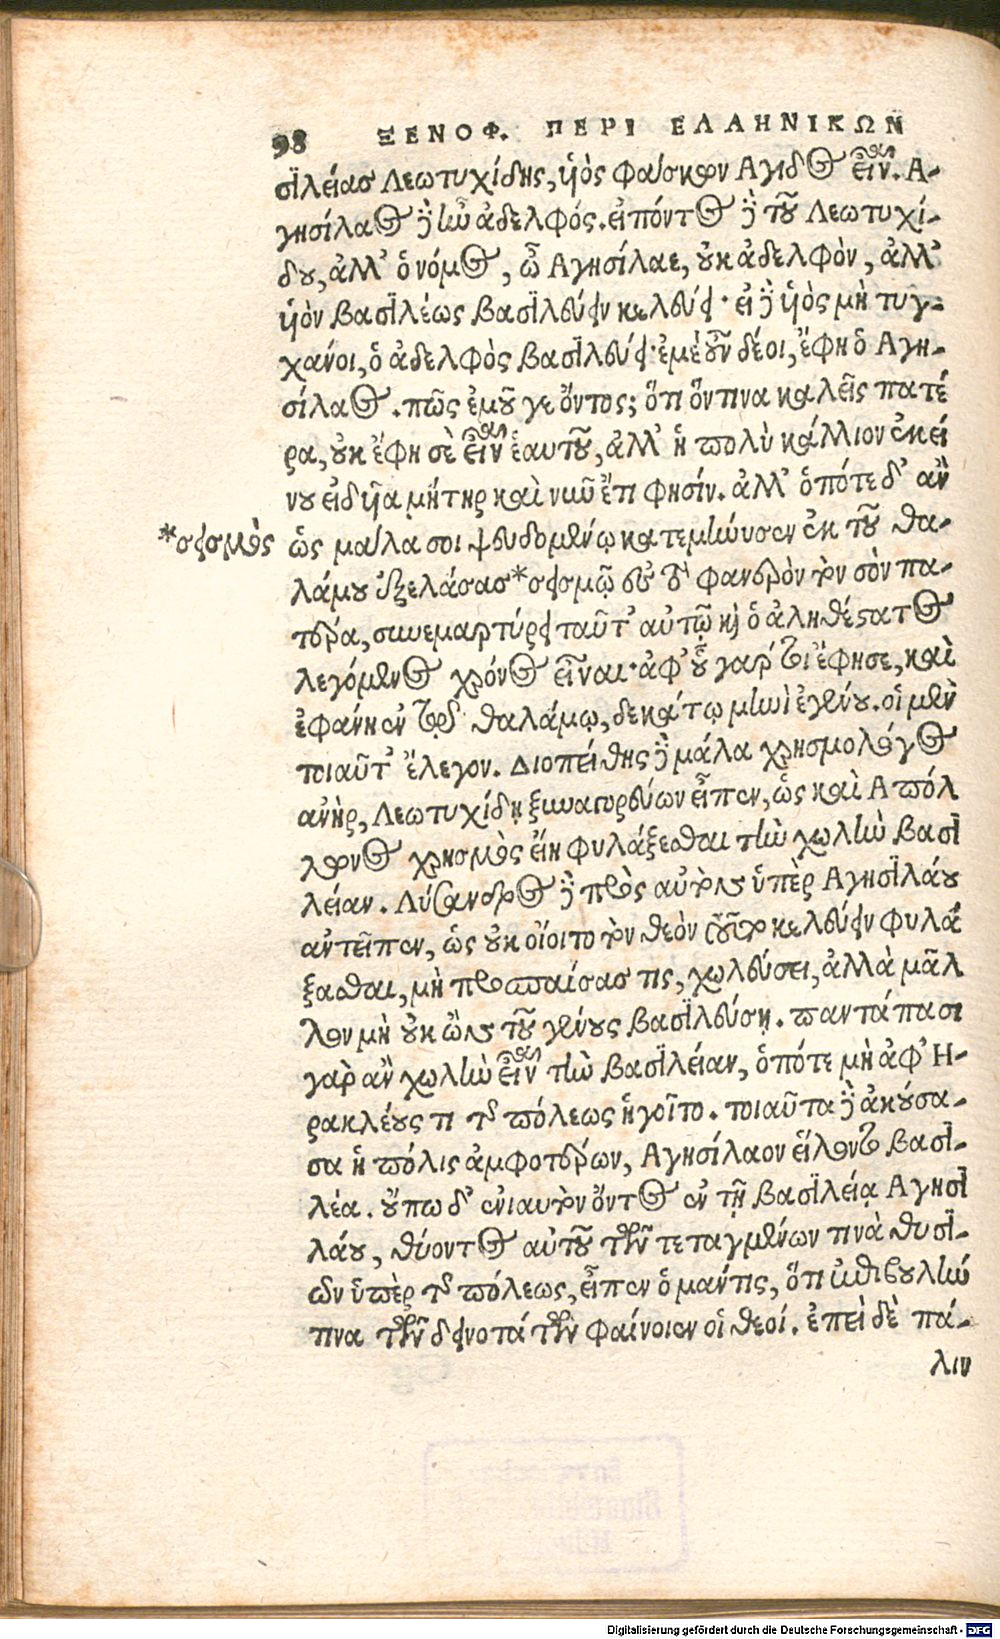 98 ΞΕΝΟΦ. ΠΕΡΙ ΕΛΛΗΝΙΚΩΝ
σιλείας Λεωτυχίδης, ὑὸς φάσκων Αγιδος εἶναι. Α-
γησίλαος δὲ ὡ ἀδελφός. εἰπόντος δὲ τοῦ Λεωτυχί-
δου, ἀλλ' ὁ νόμος, ὦ Αγησίλαε, οὐκ ἀδελφὸν, ἀλλ'
ὑὸν βασιλέως βασιλεύειν κελεύει· εἰ δὲ ὑὸς μὴ τυγ-
χάνοι, ὁ ἀδελφὸς βασιλεύει· ἐμὲ οὖν δέοι, ἔφη ὁ Αγη-
σίλαος. πῶς ἐμοῦ γε ὄντος; ὅτι ὅντινα καλεῖς πατέ
ρα, οὐκ ἔφη σὲ εἶναι ἑαυτοῦ, ἀλλ' ἡ πολὺ κάλλιον ἐκεί
νου εἰδυῖα μήτηρ καὶ νῦν ἔτι φησίν. ἀλλ' ὁπότε δ' ἂν
*σεισμὸς ὡς μάλα σοι ψευδομένῳ κατεμήνυσεν ἐκ τοῦ θα-
λάμου ἐξελάσας *σεισμῷ εἰς τὸ φανερὸν τὸν σὸν πα-
τέρα, συνεμαρτύρει ταῦτ' αὐτῷ καὶ ὁ ἀληθέστατος
λεγόμενος χρόνος εἶναι· ἀφ' οὗ γάρ τοι ἔφησε, καὶ
ἐφάνη ἐν τῷ θαλάμῳ, δεκάτῳ μηνὶ ἐγένου. οἱ μὲν
τοιαῦτ' ἔλεγον. Διοπείθης δὲ μάλα χρησμολόγος
ἀνὴρ, Λεωτυχίδῃ ξυναγορεύων εἶπεν, ὡς καὶ Απόλ
λωνος χρησμὸς εἴη φυλάξασθαι τὴν χωλὴν βασι
λείαν. Λύσανδρος δὲ πρὸς αὐτὸν ὑπὲρ Αγησιλάου
ἀντεῖπεν, ὡς οὐκ οἴοιτο τὸν θεὸν τοῦτο κελεύειν φυλά
ξασθαι, μὴ προσπαίσας τις, χωλεύσει, ἀλλὰ μᾶλ
λον μὴ οὐκ ὢν τοῦ γένους βασιλεύσῃ. παντάπασι
γὰρ ἂν χωλὴν εἶναι τὴν βασιλείαν, ὁπότε μὴ ἀφ' Η-
ρακλέους τι τῆς πόλεως ἡγοῖτο. τοιαῦτα δὲ ἀκούσα-
σα ἡ πόλις ἀμφοτέρων, Αγησίλαον εἵλοντο βασι-
λέα. οὔπω δ' ἐνιαυτὸν ὄντος ἐν τῇ βασιλείᾳ Αγησι
λάου, θύοντος αὐτοῦ τῶν τεταγμένων τινὰ θυσι-
ῶν ὑπὲρ τῆς πόλεως, εἶπεν ὁ μάντις, ὅτι ἐπιβουλήν
τινα τῶν δεινοτάτων φαίνοιεν οἱ θεοί. ἐπεὶ δὲ πά-
λιν
Digitalisierung gefördert durch die Deutsche Forschungsgemeinschaft - DFG